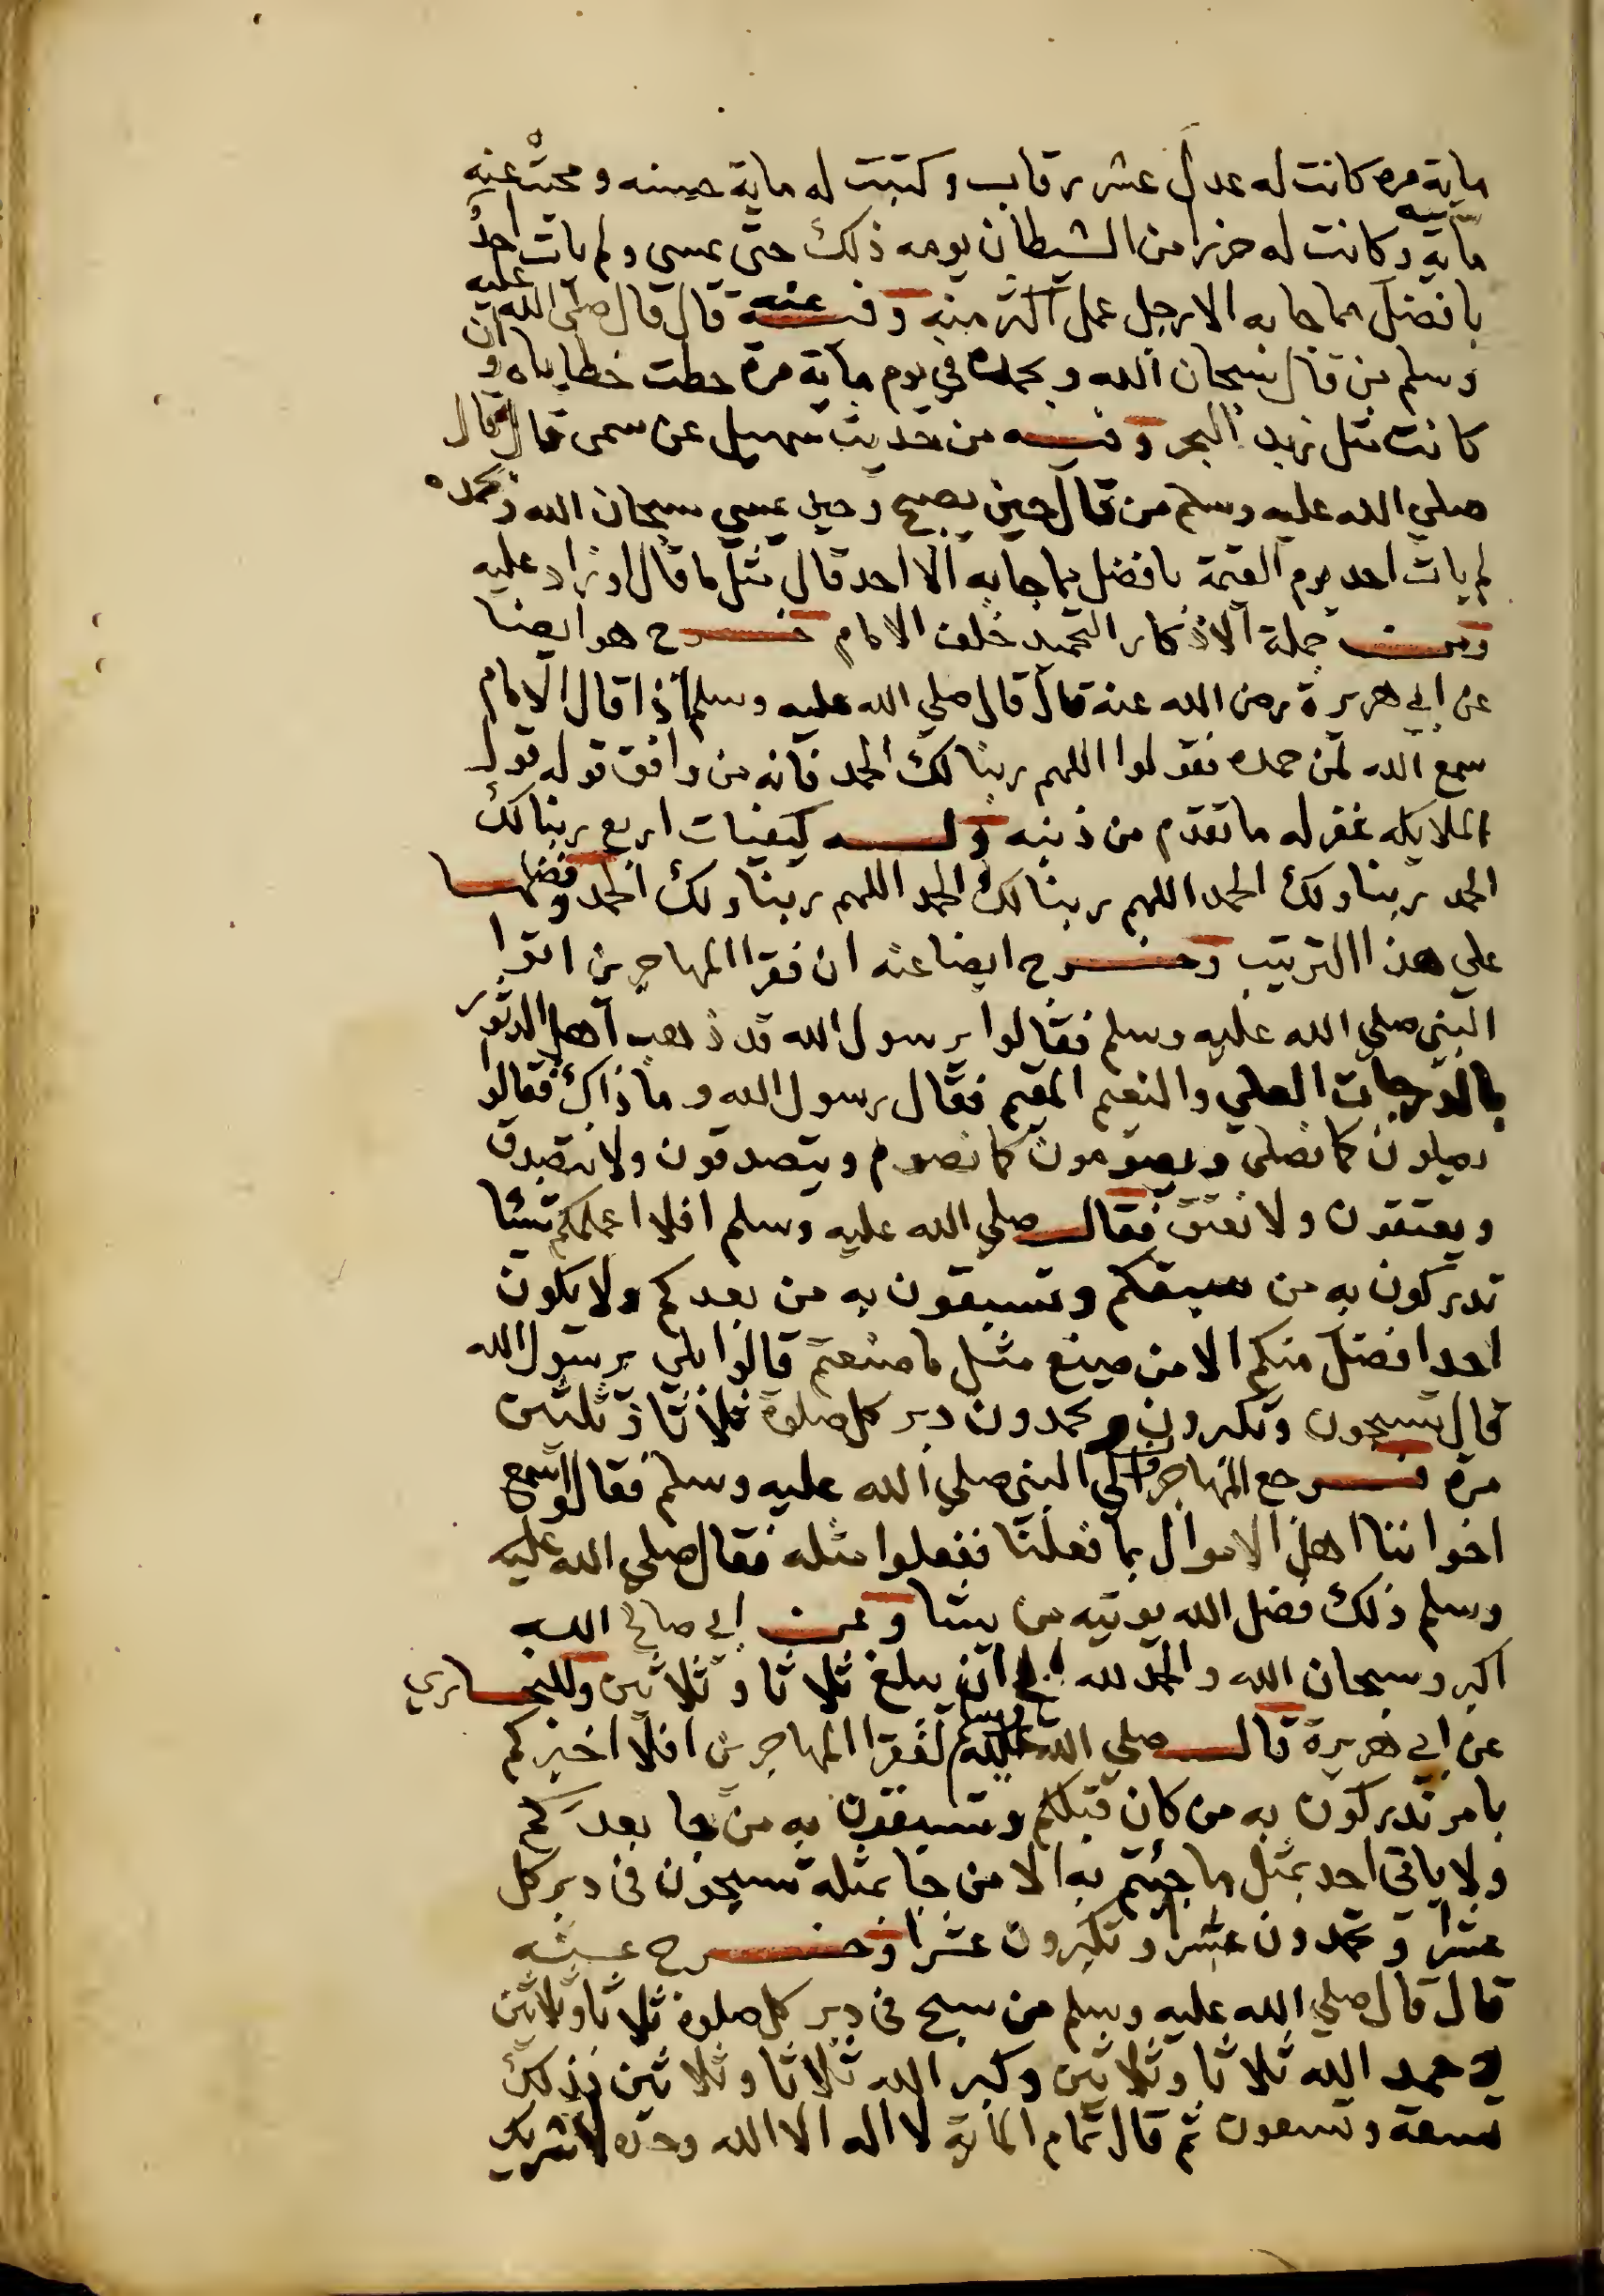 ماية مرة كانت له عدل عشر رقاب وكتبت له ماية حسنه ومحيت عنه
ماية سيه وكانت له حرزا من الشيطان يومه ذلك حتى يمسي ولم يات احد
بافضل مما جا به الا رجل عمل اكثر منه وفيه عنه قال قال صلى الله عليه
وسلم من قال سبحان الله وبحمده في يوم ماية مرة حطت خطاياه وان
كانت مثل زبد البحر وفيه من حديث سهيل عن سمى قال قال
صلي الله عليه وسلم من قال حين يصبح وحين يمسي سبحان الله وبحمده
لم يات احد يوم القيمة بافضل مما جا به الا احد قال مثل ما قال او زاد عليه
ومن جملة الاذكار التحميد خلف الامام خرج هو ايضا
عن ابي هريرة رضى الله عنه قال قال صلي الله عليه وسلم اذا قال الامام
سمع الله لمن حمده فقولوا اللهم ربنا لك الحمد فانه من وافق قوله قول
الملايكه غفر له ما تقدم من ذنبه وله كيفيات اربع ربنا لك
الحمد ربنا ولك الحمد اللهم ربنا لك الحمد اللهم ربنا ولك الحمد وفضلها
علي هذا الترتيب وخرج ايضا عنه ان فقرا المهاجرين اتوا
النبي صلي الله عليه وسلم فقالوا يرسول الله قد ذهب اهل الدثور
بالدرجات العلي والنعيم المقيم فقال رسول الله وما ذاك فقالوا
يصلون كما نصلى ويصومون كما نصوم ويتصدقون ولا نتصدق
ويعتقون ولا نعتق فقال صلي الله عليه وسلم افلا اعلمكم شيئا
تدركون به من سبقكم وتسبقون به من بعدكم ولا يكون
احد افضل منكم الا من صنع مثل ما صنعتم قالوا بلي يرسول الله
قال تسبحون وتكبرون وتحمدون دبر كل صلوة ثلاثا وثلثين
مرة فرجع فقرا المهاجرين الى النبي صلي الله عليه وسلم فقالوا سمع
اخواننا اهل الاموال بما فعلنا ففعلوا مثله فقال صلي الله عليه
وسلم ذلك فضل الله يوتيه من يشا وعن ابي صالح الله
اكبر وسبحان الله والحمد لله الى ان يبلغ ثلاثا وثلاثين وللبخاري
عن ابي هريرة قال صلي الله عليه وسلم لفقرا المهاجرين افلا اخبركم
بامر تدركون به من كان قبلكم وتسبقون به من جا بعدكم
ولا ياتى احد بمثل ما جئتم به الا من جا بمثله تسبحون فى دبر كل
عشرا وتحمدون عشرا وتكبرون عشرا وخرج عنه
قال قال صلي الله عليه وسلم من سبح فى دبر كل صلوة ثلاثا وثلاثين
وحمد الله ثلاثا وثلاثين وكبر الله ثلاثا وثلاثين فذلك
تسعة وتسعون ثم قال تمام الماية لا اله الا الله وحده لا شريك